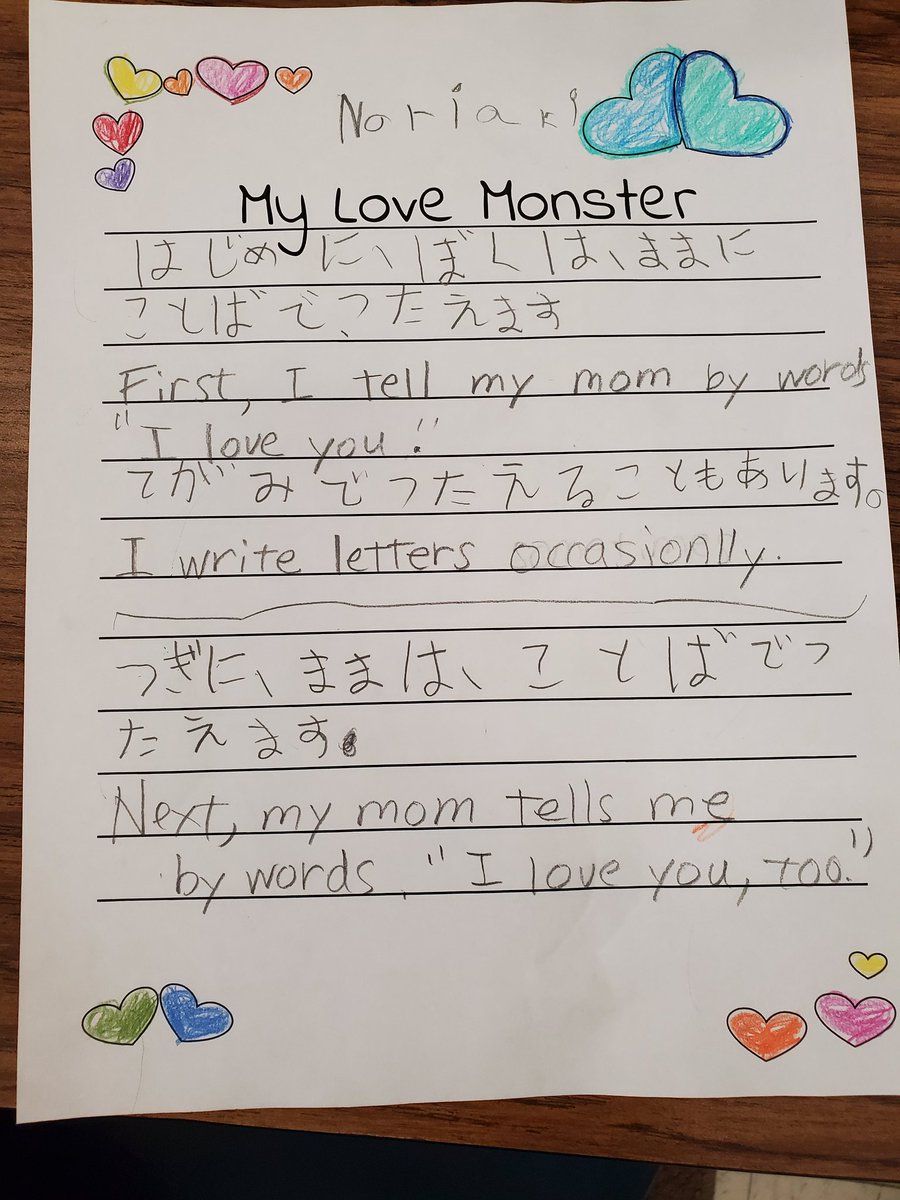 Noriaki
My Love Monster
はじめに、ぼくは、ままに
ことばで、つたえます
First, I tell my mom by words
"I love you."
てがみでつたえることもあります。
I write letters occasionlly.
つぎに、ままは、ことばでつ
たえます。
Next, my mom tells me
by words, "I love you, too."